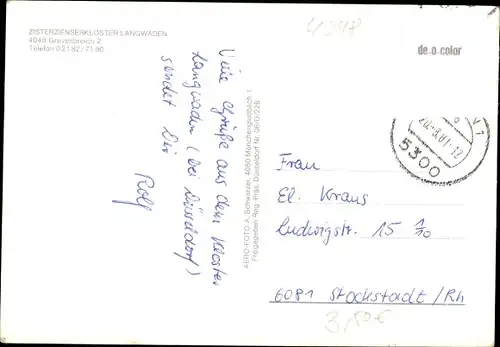 ZISTERZIENSERKLOSTER LANGWADEN
4048 Grevenbroich 2
Telefon 02182/7190
4048
de-o-color
Viele Grüße aus dem Kloster
Langwaden (bei Düsseldorf)
sendet Dir
Rolf
AERO-FOTO A. Schwarzer, 4050 Mönchengladbach 1
Freigegeben Reg.-Präs. Düsseldorf Nr. 06/0/228
5300
Frau
El. Kraus
Ludwigstr. 15 1/10
6081 Stockstadt/Rh
3,50€